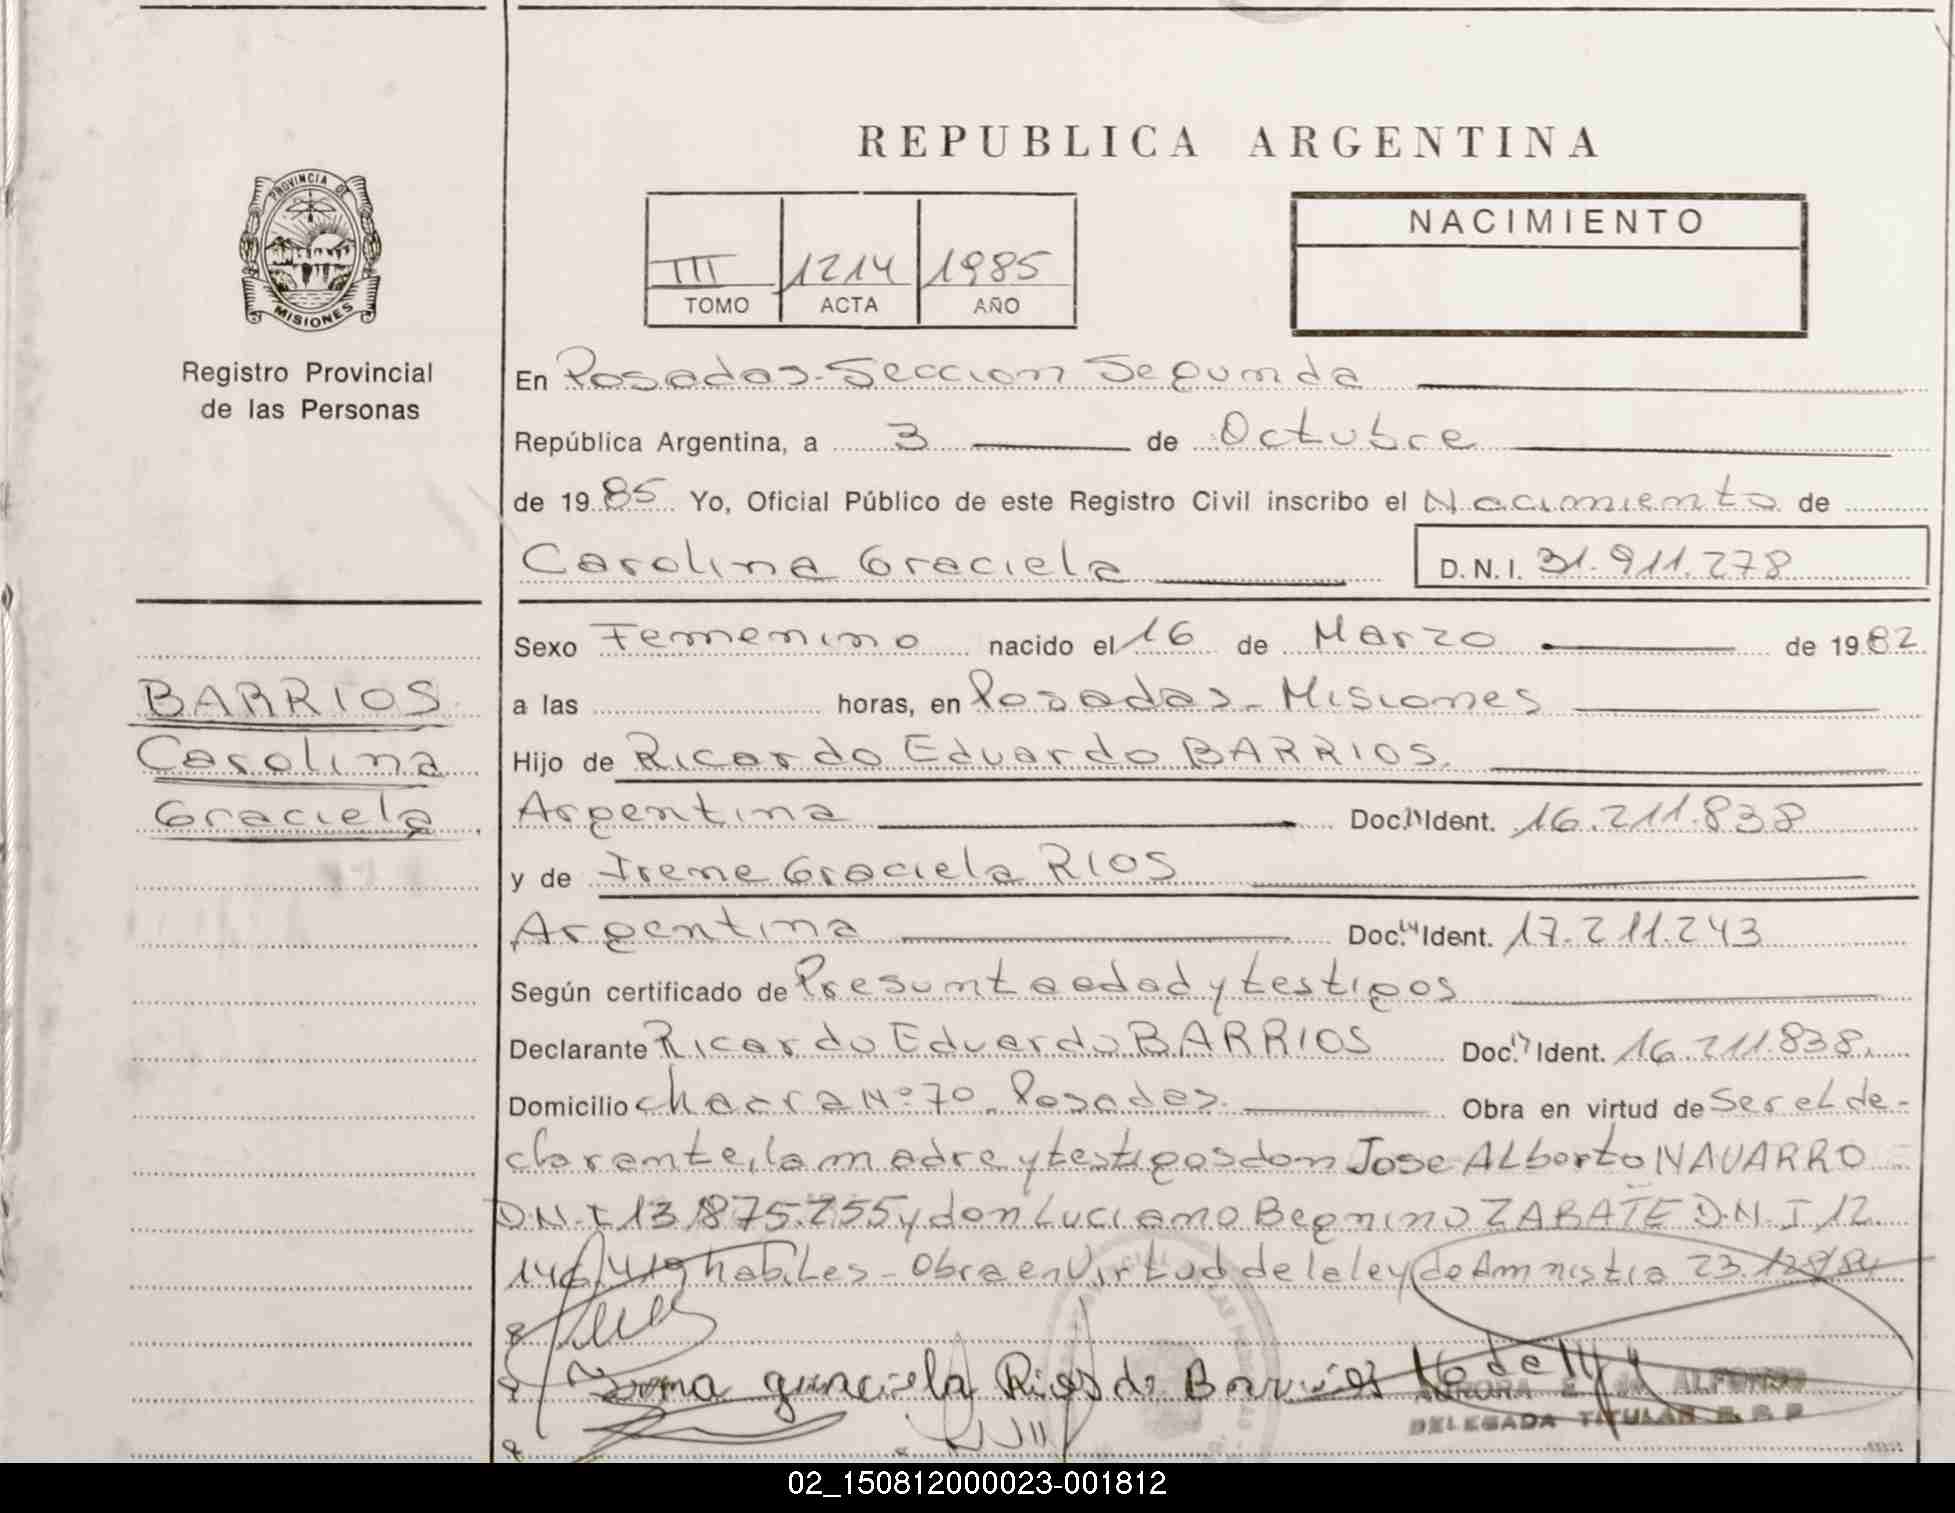 REPUBLICA ARGENTINA
PROVINCIA DE
MISIONES
Registro Provincial
de las Personas
III 1214 1985
TOMO ACTA AÑO
NACIMIENTO
En Posadas-Seccion Segunda
República Argentina, a 3 de Octubre
de 1985 Yo, Oficial Público de este Registro Civil inscribo el Nacimiento de
Carolina Graciela D.N.I. 31.911.278
BARRIOS
Carolina
Graciela
Sexo Femenino nacido el 16 de Marzo de 1982
a las horas, en Posadas-Misiones
Hijo de Ricardo Eduardo BARRIOS.
Argentina Doc. Ident. 16.211.838
y de Irene Graciela RIOS
Argentina Doc. Ident. 17.211.243
Según certificado de Presunta edad y testigos
Declarante Ricardo Eduardo BARRIOS Doc. Ident. 16.211.838.
Domicilio chacra Nº 70 Posadas. Obra en virtud de Ser el de-
clarante, la madre y testigos don Jose ALberto NAVARRO
D.N.I 13.875.255 y don Luciano Begnino ZARATE D.N.I. 12
146.419 habiles - Obra en Virtud de la ley de Amnistia 23.
graciela Rios de Barrios
AURORA E. de ALFONSO
DELEGADA TITULAR R.P.P
02_150812000023-001812